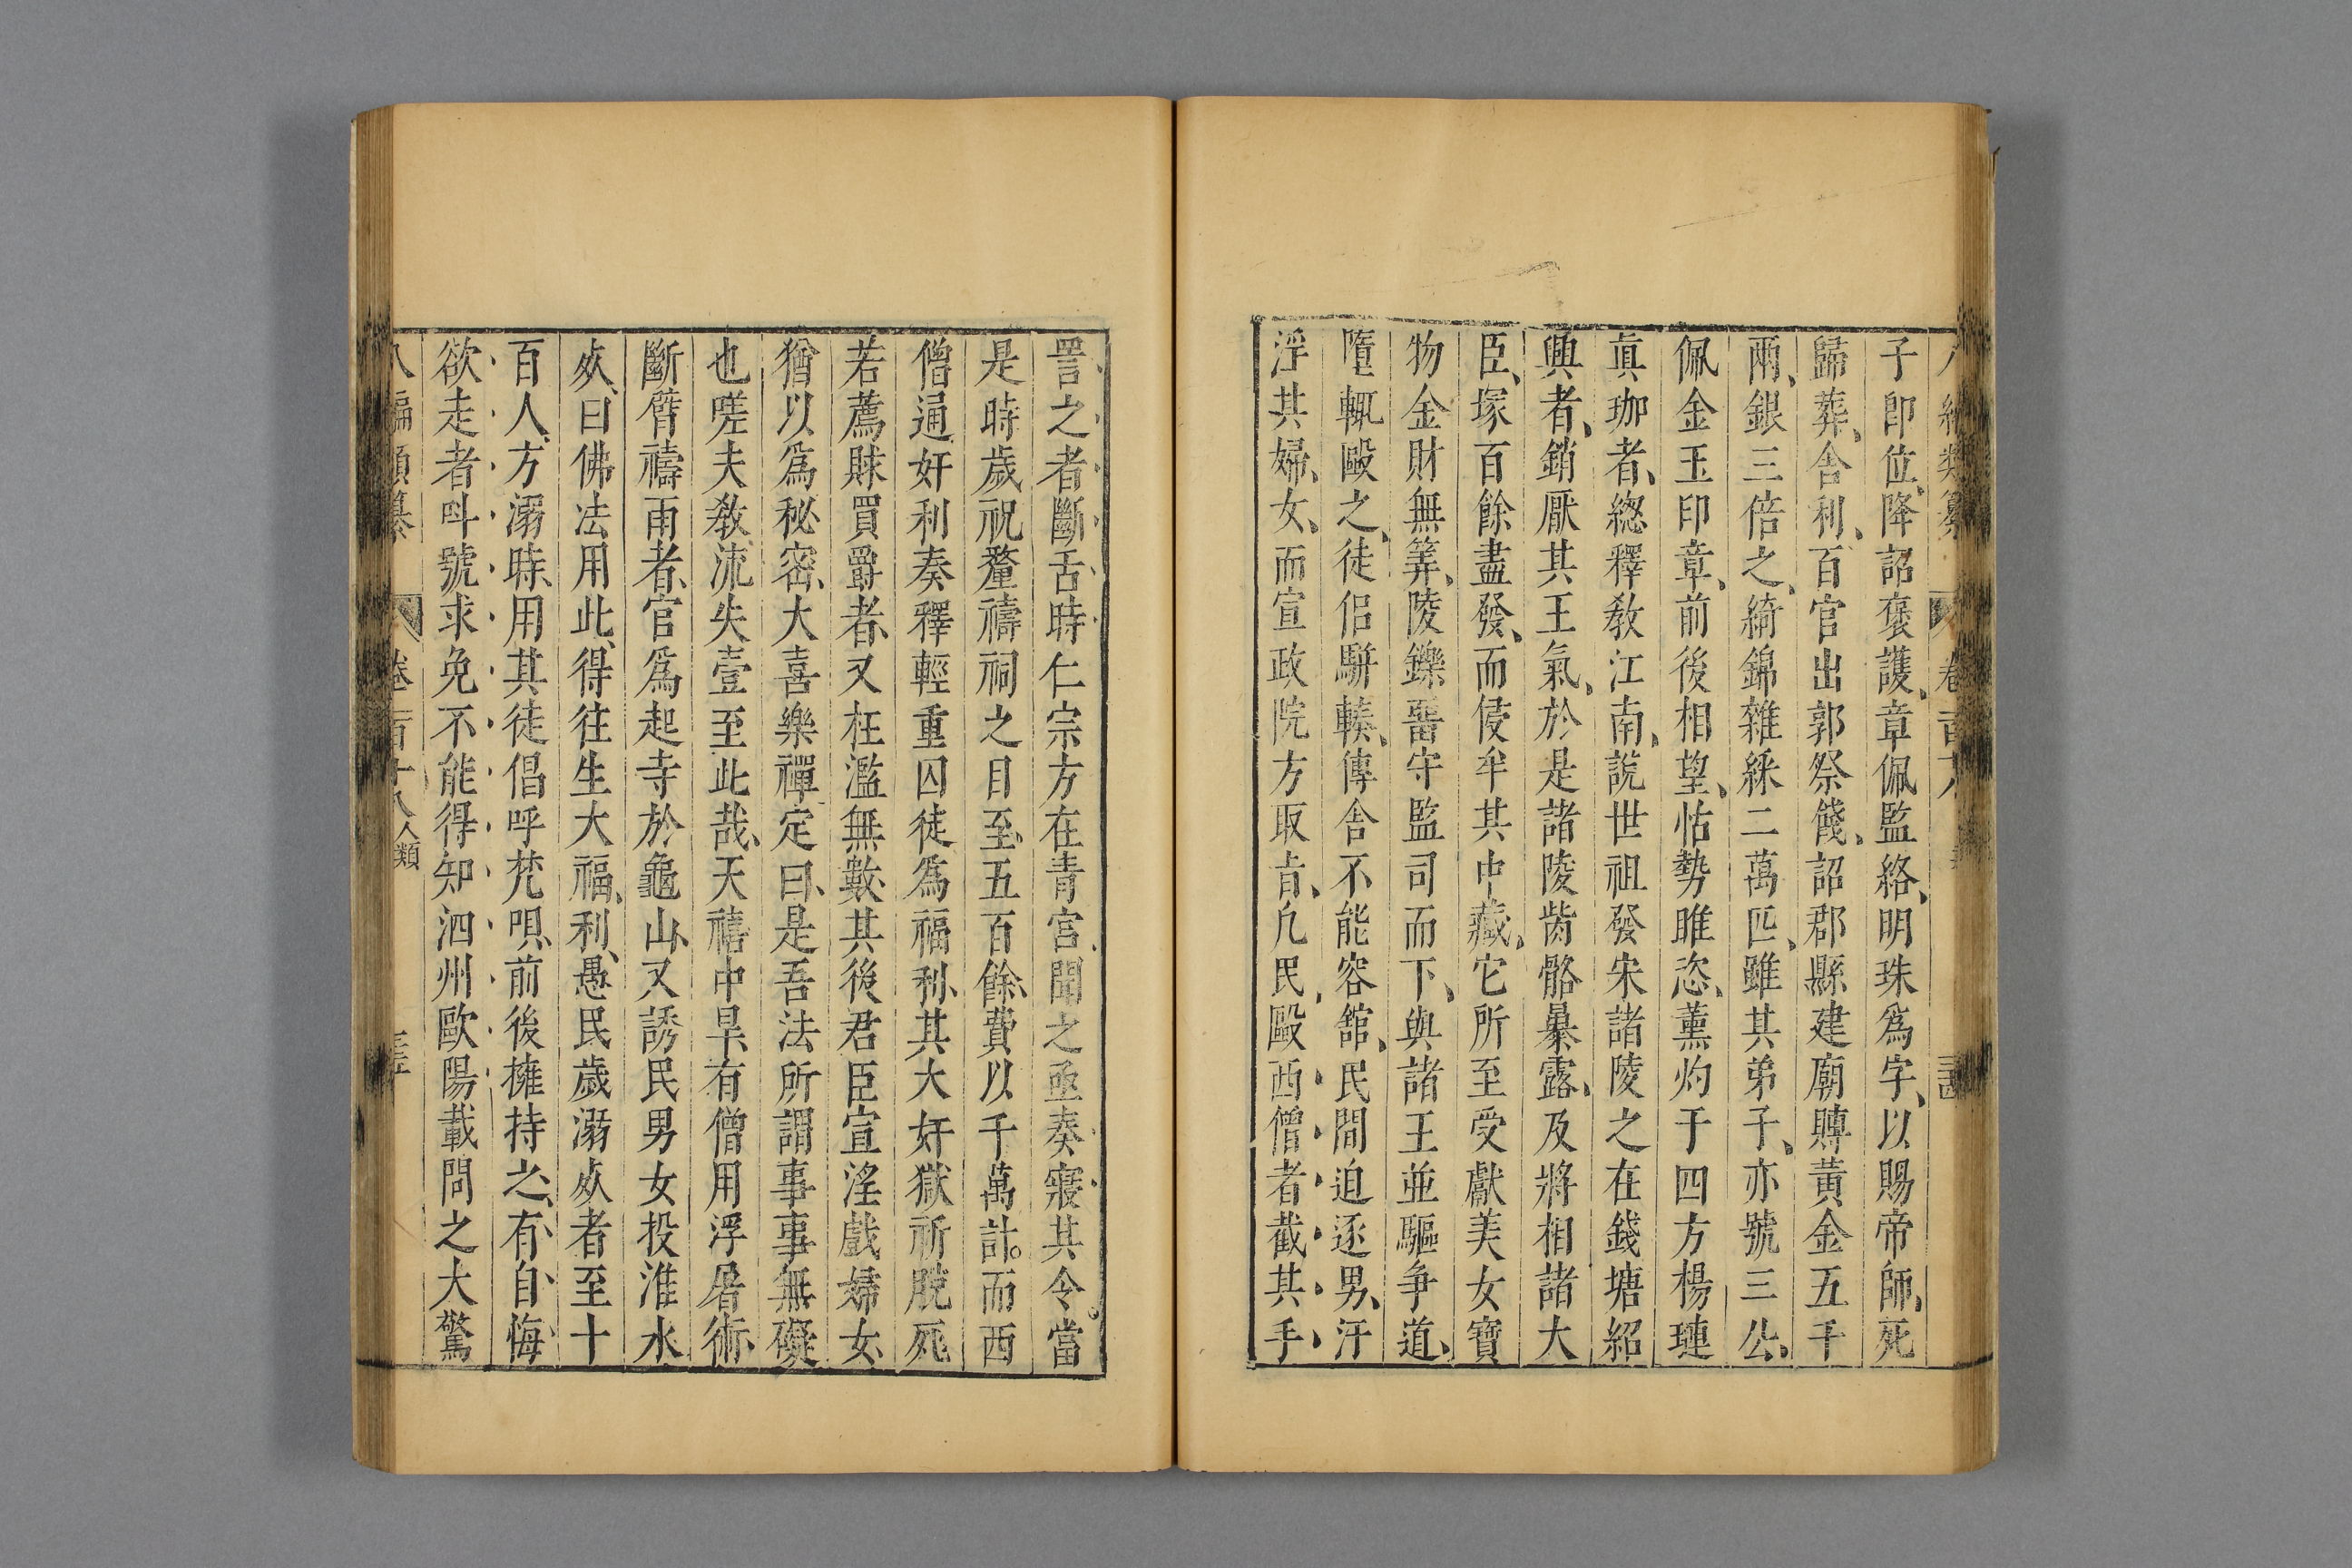 子卽位降詔褒護章佩監絡明珠爲字以賜帝師死
歸葬舍利百官出郭祭餞詔郡縣建廟賻黃金五千
兩銀三倍之綺錦雜綵二萬匹雖其弟子亦號三公
佩金玉印章前後相望怙勢睢恣薰灼于四方楊璉
眞珈者緫釋敎江南說世祖發宋諸陵之在錢塘紹
興者銷厭其王氣於是諸陵胔骼暴露及將相諸大
臣塚百餘盡發而侵牟其中藏它所至受獻美女寶
物金財無筭陵鑠詈守監司而下與諸王並驅争道
墮輒毆之徒侣駢輳傳舍不能容館民間迫逐男汙
淫其婦女而宣政院方取旨凢民毆西僧者截其手
詈之者斷舌時仁宗方在青宫聞之亟奏寢其令當
是時歲祝釐禱祠之目至五百餘費以千萬計而西
僧通奸利奏釋輕重囚徒爲福利其大奸獄祈脫死
若薦賕買爵者又枉濫無數其後君臣宣淫戲婦女
猶以爲秘密大喜樂禪定曰是吾法所謂事事無礙
也嗟夫敎流失壹至此哉天禧中旱有僧用浮屠術
斷臂禱雨者官爲起寺於龜山又誘民男女投淮水
死曰佛法用此得往生大福利愚民歲溺死者至十
百人方溺時用其徒倡呼梵唄前後擁持之有自悔
欲走者呌號求免不能得知泗州歐陽載問之大驚
八編類纂 卷一百十八 人類